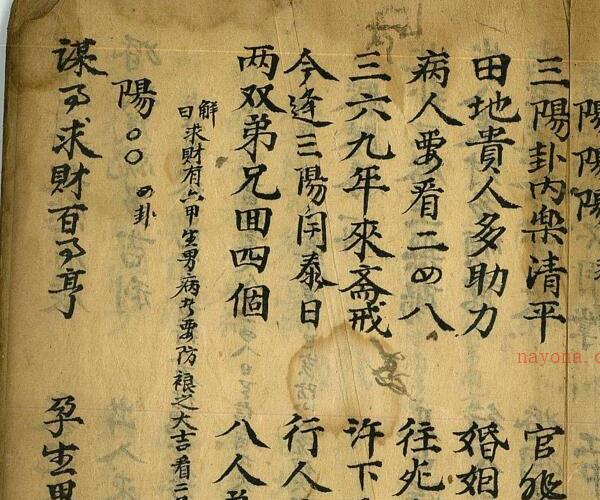 陽陽陽
三陽卦内樂清平 官
田地貴人多助力 婚姻
病人要看二四八 往
三六九年來斋戒 許下
今逢三陽開泰日 行人
两双弟兄囬四個 八人
解曰求財有六甲生男病者要防 之大吉看二
陽○○ 四卦
謀事求財百事亨 孕生男
nayona.c